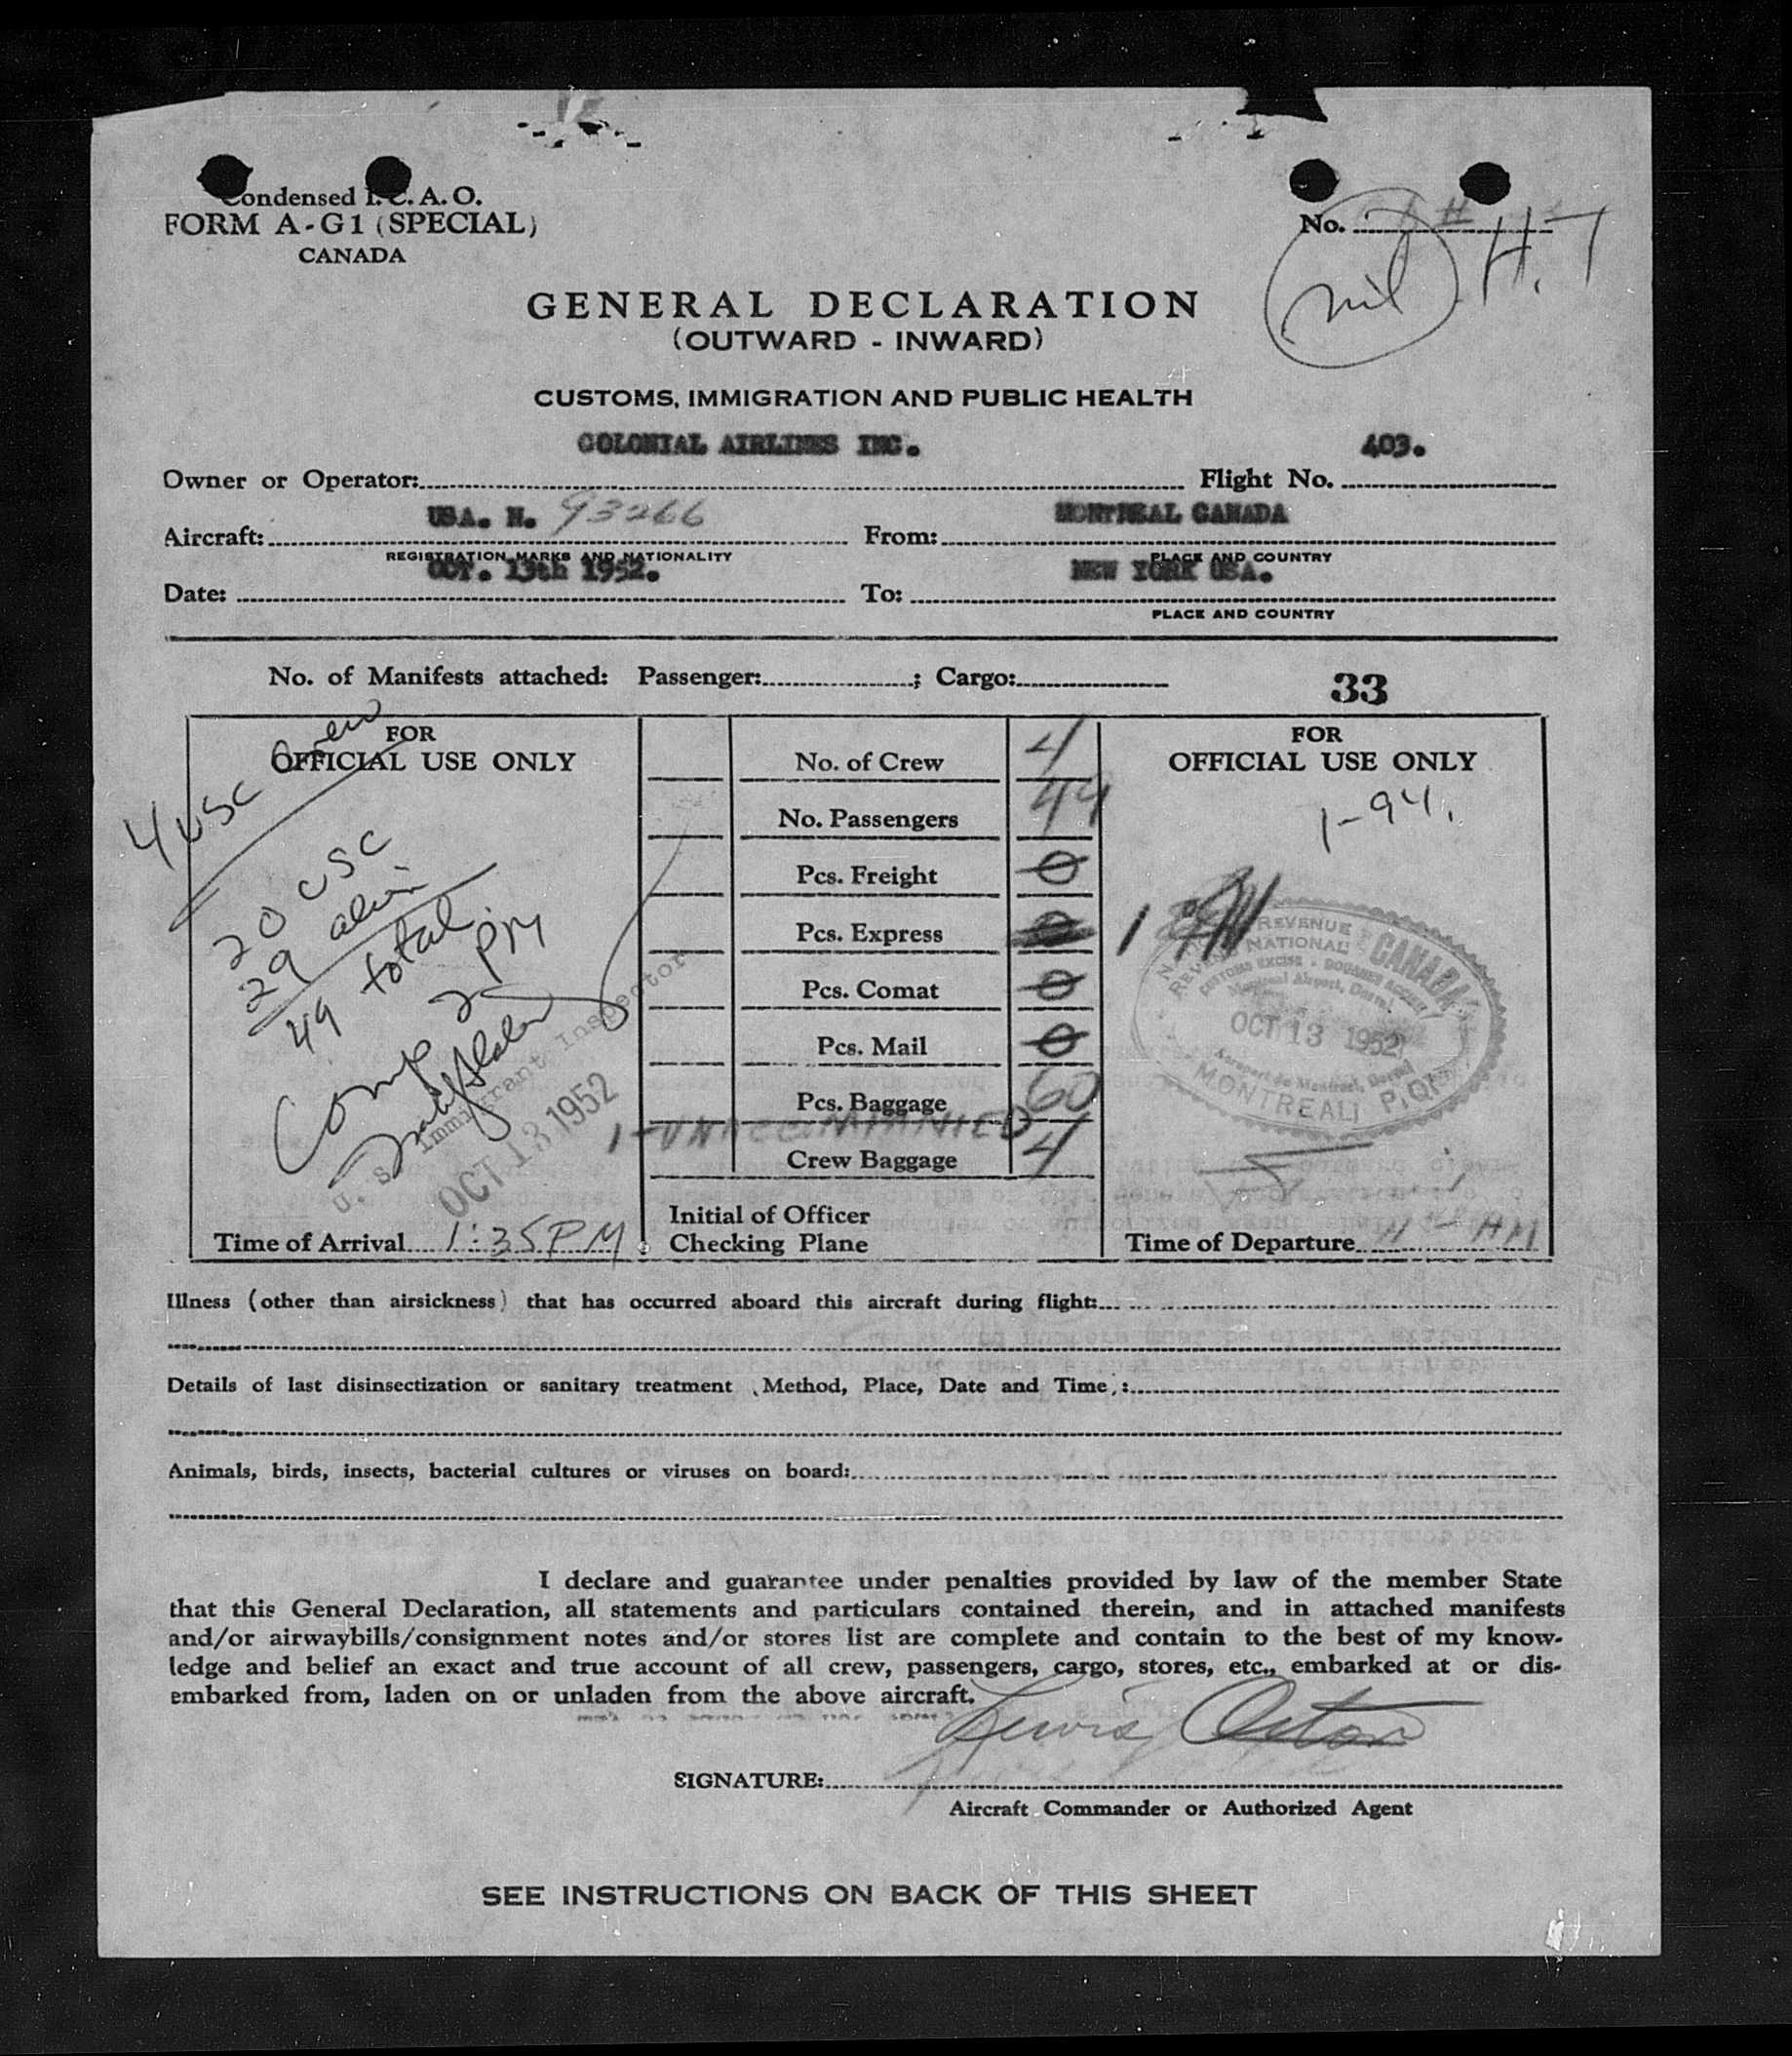 Condensed I.C.A.O.
FORM A-G1 (SPECIAL)
CANADA
No.
nil H.T
GENERAL DECLARATION
(OUTWARD - INWARD)
CUSTOMS, IMMIGRATION AND PUBLIC HEALTH
COLONIAL AIRLINES INC. 403.
Owner or Operator: Flight No.
USA. N. 93266 MONTREAL CANADA
Aircraft: From:
REGISTRATION MARKS AND NATIONALITY PLACE AND COUNTRY
OCT. 13th 1952. NEW YORK USA.
Date: To:
PLACE AND COUNTRY
No. of Manifests attached: Passenger: ; Cargo:
33
FOR
OFFICIAL USE ONLY
4 USC Crew
20 USC
29 alien
49 total
Comp 2 PM
U. S. Immigrant Inspector
OCT 13 1952
Time of Arrival 1:35PM
No. of Crew 4
No. Passengers 49
Pcs. Freight 0
Pcs. Express 0
Pcs. Comat 0
Pcs. Mail 0
Pcs. Baggage 60
1-UNACCOMPANIED
Crew Baggage 4
Initial of Officer
Checking Plane
FOR
OFFICIAL USE ONLY
1-94.
REVENUE
NATIONAL
CANADA
CUSTOMS EXCISE - DOUANES ACCISE
Montreal Airport, Dorval
OCT 13 1952
Aeroport de Montreal, Dorval
MONTREAL, P.Q.
Time of Departure 11 - AM
Illness (other than airsickness) that has occurred aboard this aircraft during flight:
Details of last disinsectization or sanitary treatment (Method, Place, Date and Time):
Animals, birds, insects, bacterial cultures or viruses on board:
I declare and guarantee under penalties provided by law of the member State
that this General Declaration, all statements and particulars contained therein, and in attached manifests
and/or airwaybills/consignment notes and/or stores list are complete and contain to the best of my know-
ledge and belief an exact and true account of all crew, passengers, cargo, stores, etc., embarked at or dis-
embarked from, laden on or unladen from the above aircraft.
Lewis
SIGNATURE:
Aircraft Commander or Authorized Agent
SEE INSTRUCTIONS ON BACK OF THIS SHEET